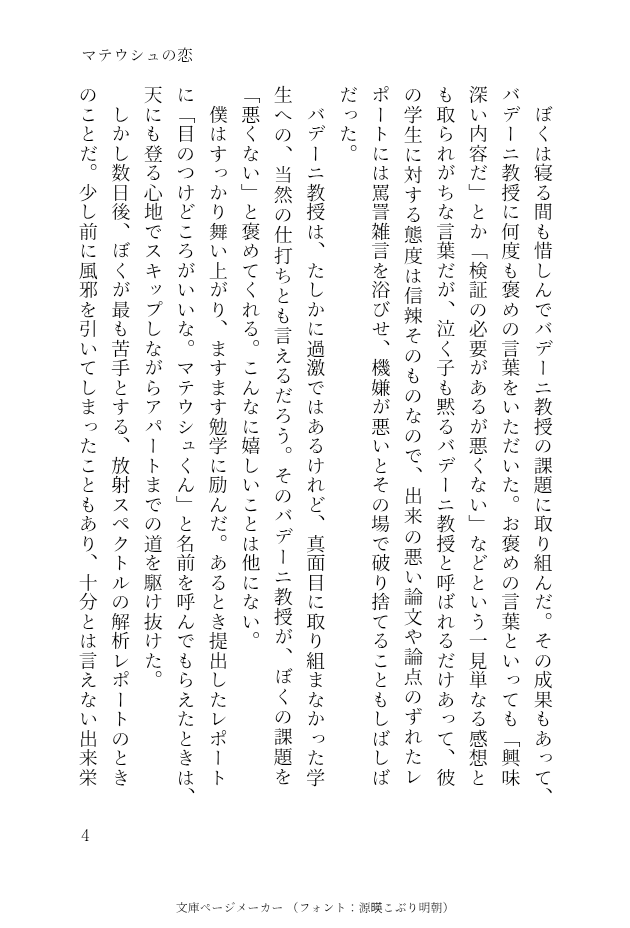 マテウシュの恋
　ぼくは寝る間も惜しんでバデーニ教授の課題に取り組んだ。その成果もあって、
バデーニ教授に何度も褒めの言葉をいただいた。お褒めの言葉といっても「興味
深い内容だ」とか「検証の必要があるが悪くない」などという一見単なる感想と
も取られがちな言葉だが、泣く子も黙るバデーニ教授と呼ばれるだけあって、彼
の学生に対する態度は信辣そのものなので、出来の悪い論文や論点のずれたレ
ポートには罵詈雑言を浴びせ、機嫌が悪いとその場で破り捨てることもしばしば
だった。
　バデーニ教授は、たしかに過激ではあるけれど、真面目に取り組まなかった学
生への、当然の仕打ちとも言えるだろう。そのバデーニ教授が、ぼくの課題を
「悪くない」と褒めてくれる。こんなに嬉しいことは他にない。
　僕はすっかり舞い上がり、ますます勉学に励んだ。あるとき提出したレポート
に「目のつけどころがいいな。マテウシュくん」と名前を呼んでもらえたときは、
天にも登る心地でスキップしながらアパートまでの道を駆け抜けた。
　しかし数日後、ぼくが最も苦手とする、放射スペクトルの解析レポートのとき
のことだ。少し前に風邪を引いてしまったこともあり、十分とは言えない出来栄
4
文庫ページメーカー（フォント：源暎こぶり明朝）